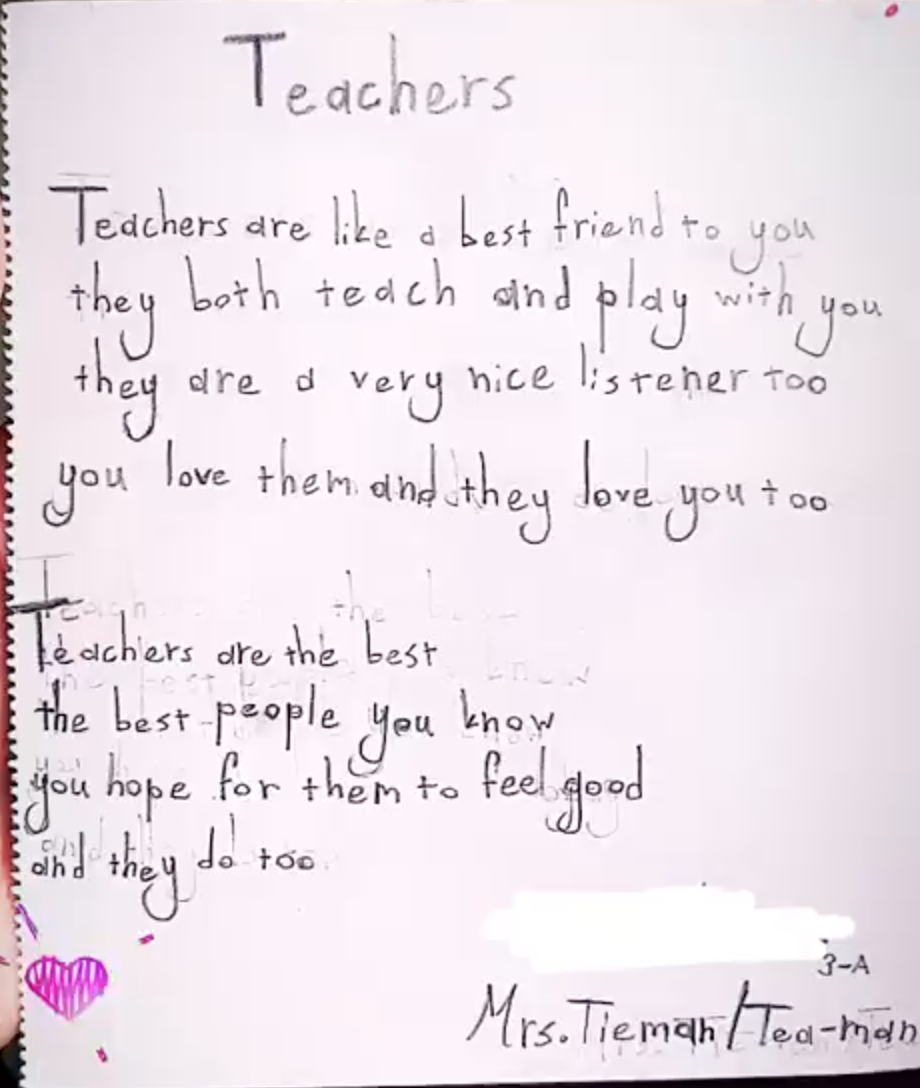 Teachers
Teachers are like a best friend to you
they both teach and play with you
they are a very nice listener too
you love them and they love you too
Teachers are the best
the best people you know
you hope for them to feel good
and they do too
3-A
Mrs. Tieman/Tea-man